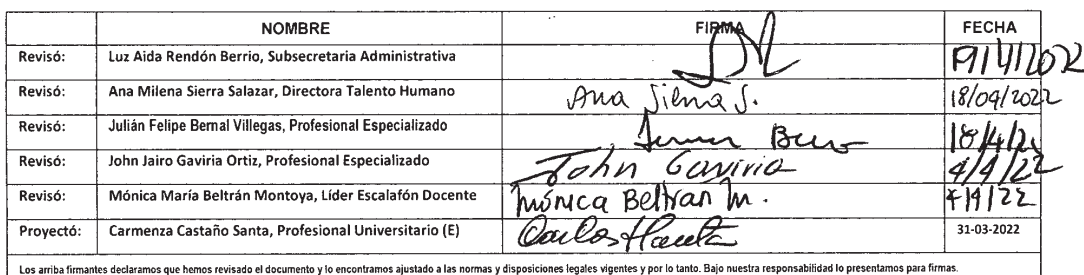 NOMBRE FIRMA FECHA
Revisó: Luz Aida Rendón Berrio, Subsecretaria Administrativa
Revisó: Ana Milena Sierra Salazar, Directora Talento Humano Ana Sierra S. 18/04/2022
Revisó: Julián Felipe Bernal Villegas, Profesional Especializado
Revisó: John Jairo Gaviria Ortiz, Profesional Especializado John Gaviria 4/4/22
Revisó: Mónica María Beltrán Montoya, Líder Escalafón Docente Mónica Beltran M. 4/4/22
Proyectó: Carmenza Castaño Santa, Profesional Universitario (E) 31-03-2022
Los arriba firmantes declaramos que hemos revisado el documento y lo encontramos ajustado a las normas y disposiciones legales vigentes y por lo tanto. Bajo nuestra responsabilidad lo presentamos para firmas.